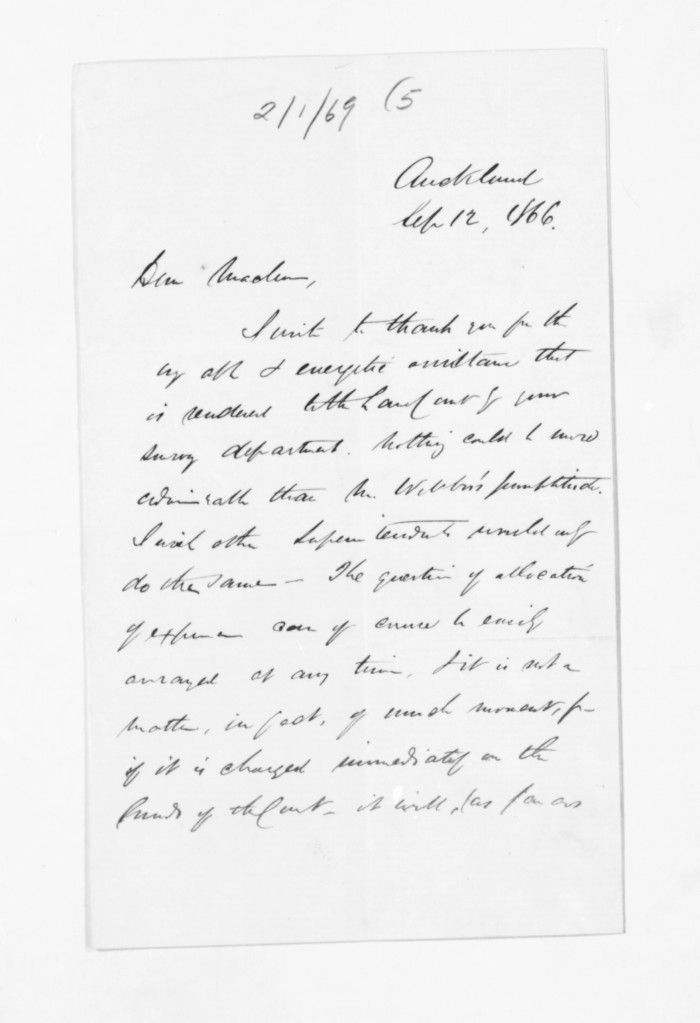 2/1/69 (5
Auckland
Sep 12, 1866.
Dear Maclean,
I write to thank you for the
very able & energetic assistance that
is rendered to the Land Court by your
survey department. Nothing could be more
admirable than Mr. Webber's promptitude.
I wish other Superintendents would only
do the same – The question of allocation
of expense can of course be easily
arranged at any time, & it is not a
matter, in fact, of much moment, for
if it is charged immediately on the
funds of the Court – it will, (as far as